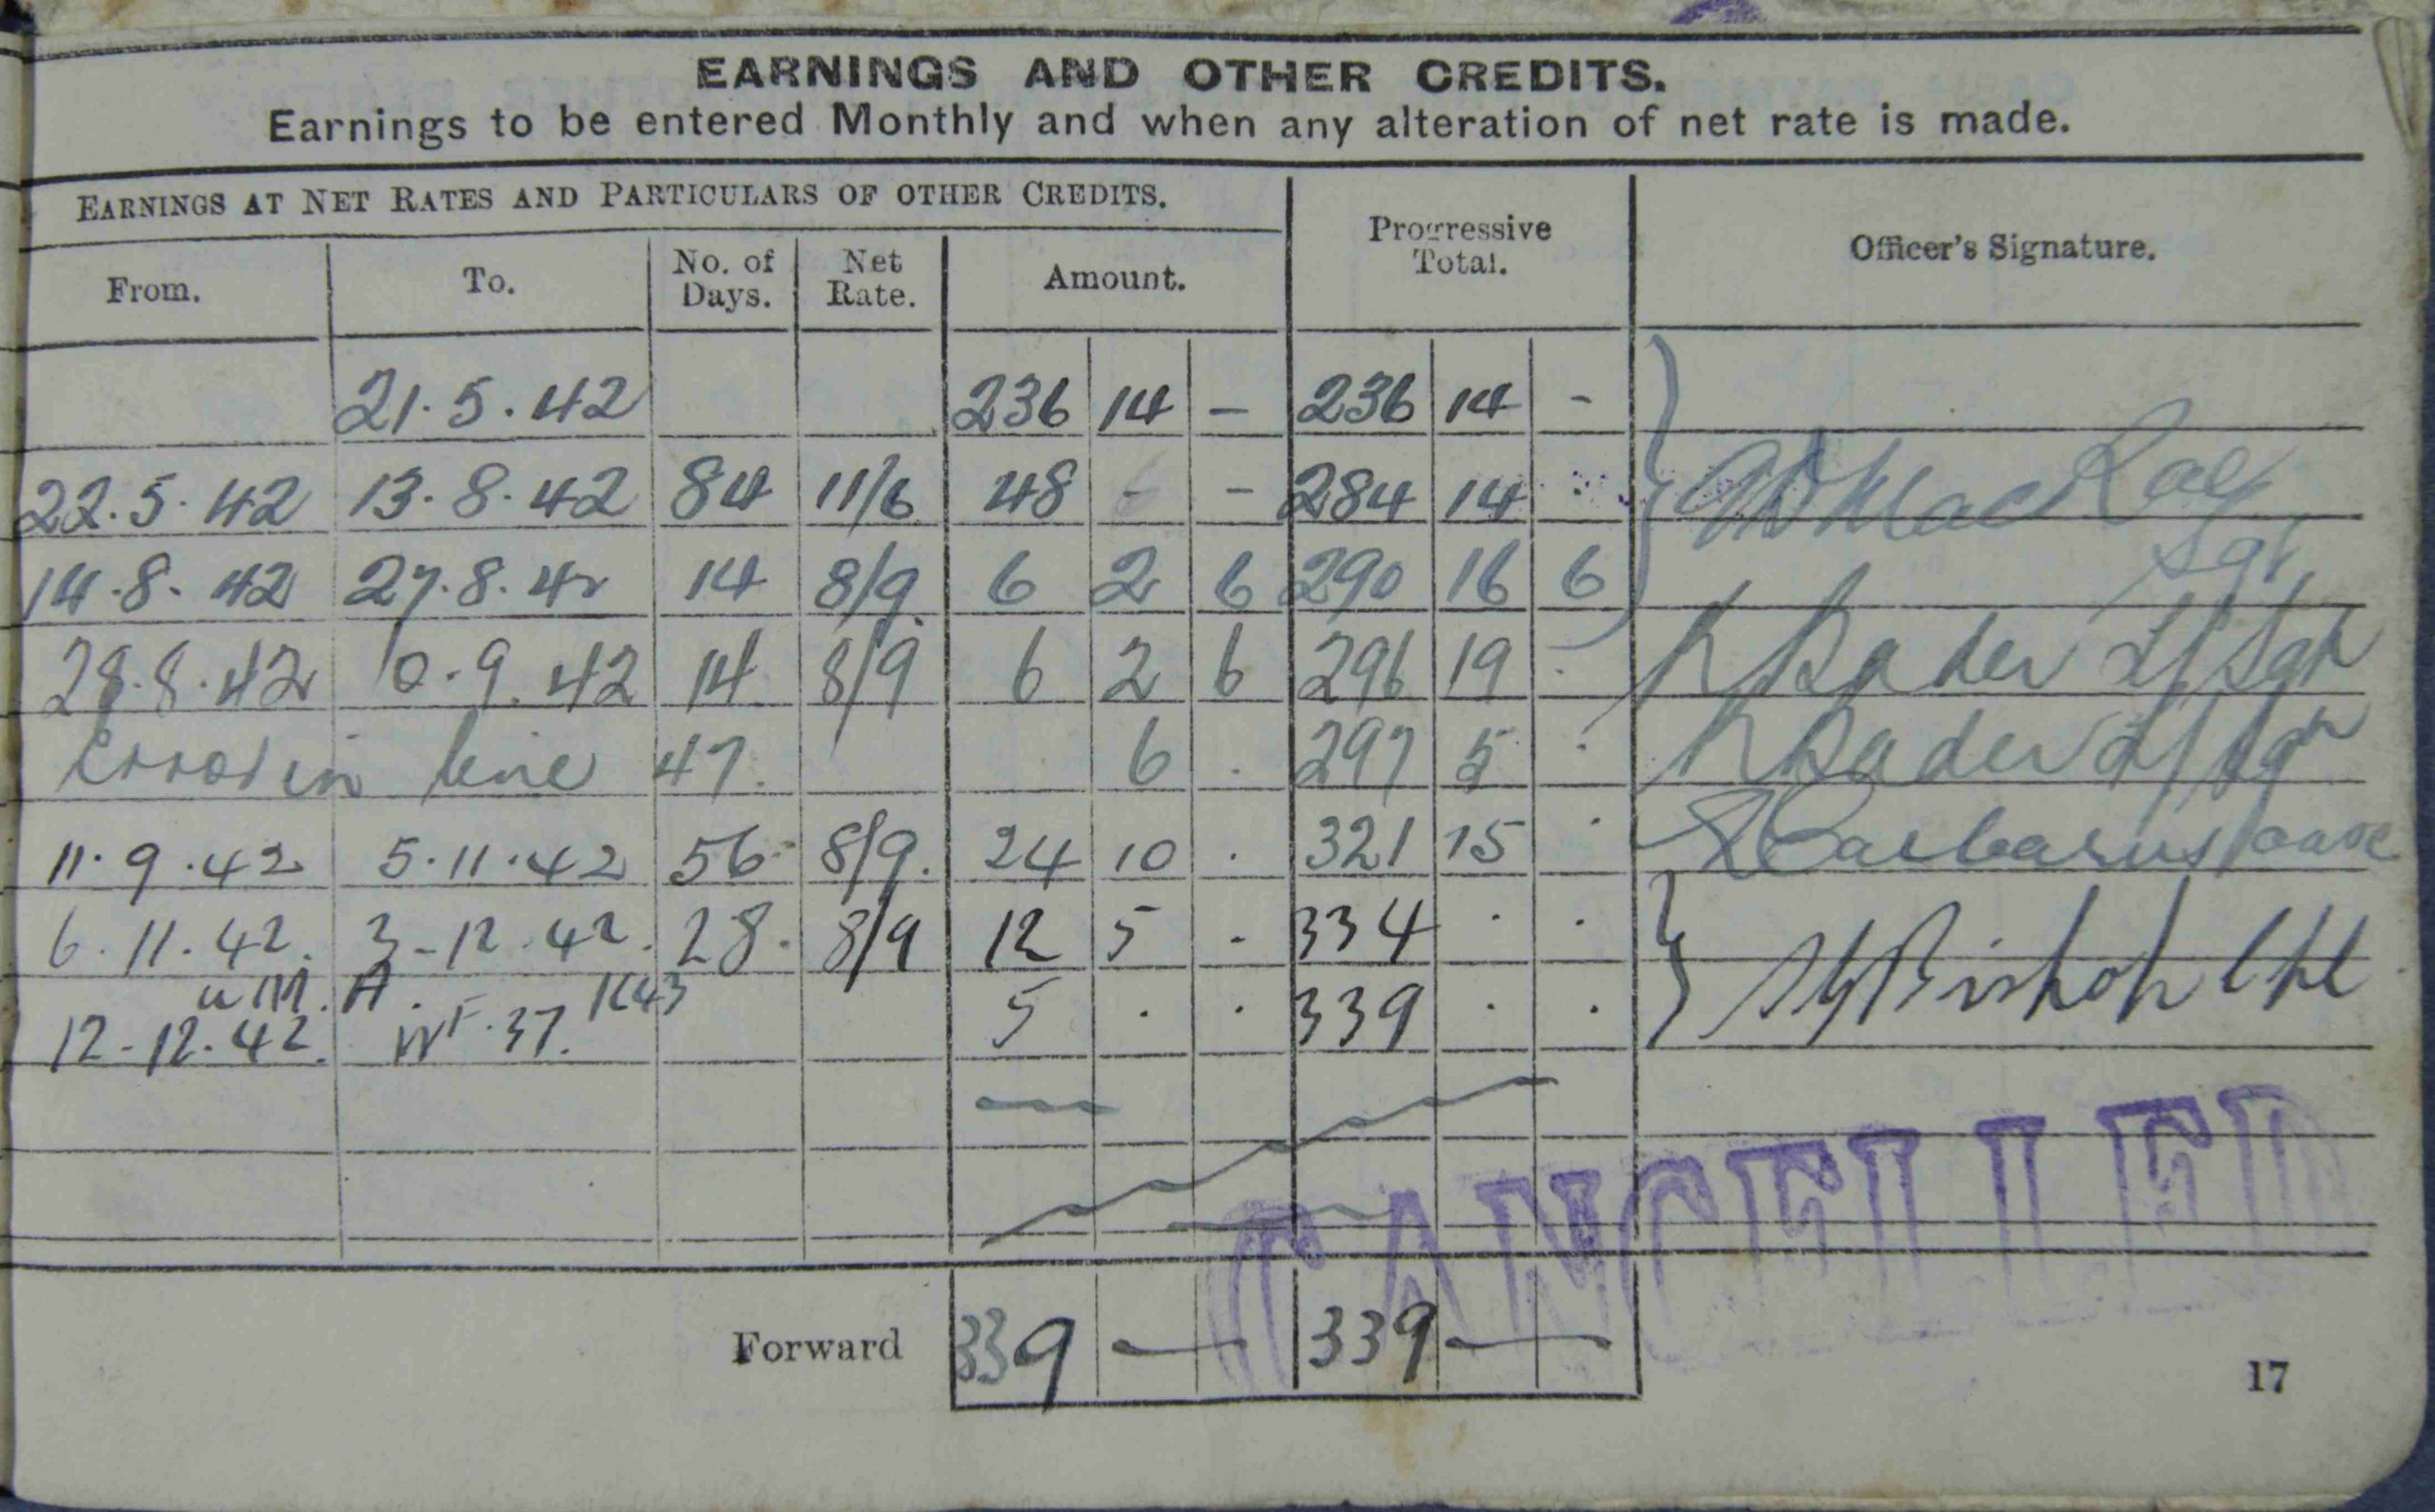 EARNINGS AND OTHER CREDITS.
Earnings to be entered Monthly and when any alteration of net rate is made.
EARNINGS AT NET RATES AND PARTICULARS OF OTHER CREDITS.
Progressive Total.
Officer's Signature.
From. To. No. of Days. Net Rate. Amount.
21.5.42 236 14 - 236 14 -
22.5.42 13.8.42 84 11/6 48 - - 284 14
MacRae
Sgt
14.8.42 27.8.42 14 8/9 6 2 6 290 16 6
28.8.42 10.9.42 14 8/9 6 2 6 296 19 . K Bader L/Sgt
Error in line 47. 6 . 297 5 . K Bader L/Sgt
11.9.42 5.11.42 56 8/9. 24 10 . 321 15 .
6.11.42. 3-12-42. 28. 8/9 12 5 - 334 . .
Bishop Cpl
12-12-42. 37. K43 5 . . 339 . .
CANCELLED
Forward 339 — 339 —
17